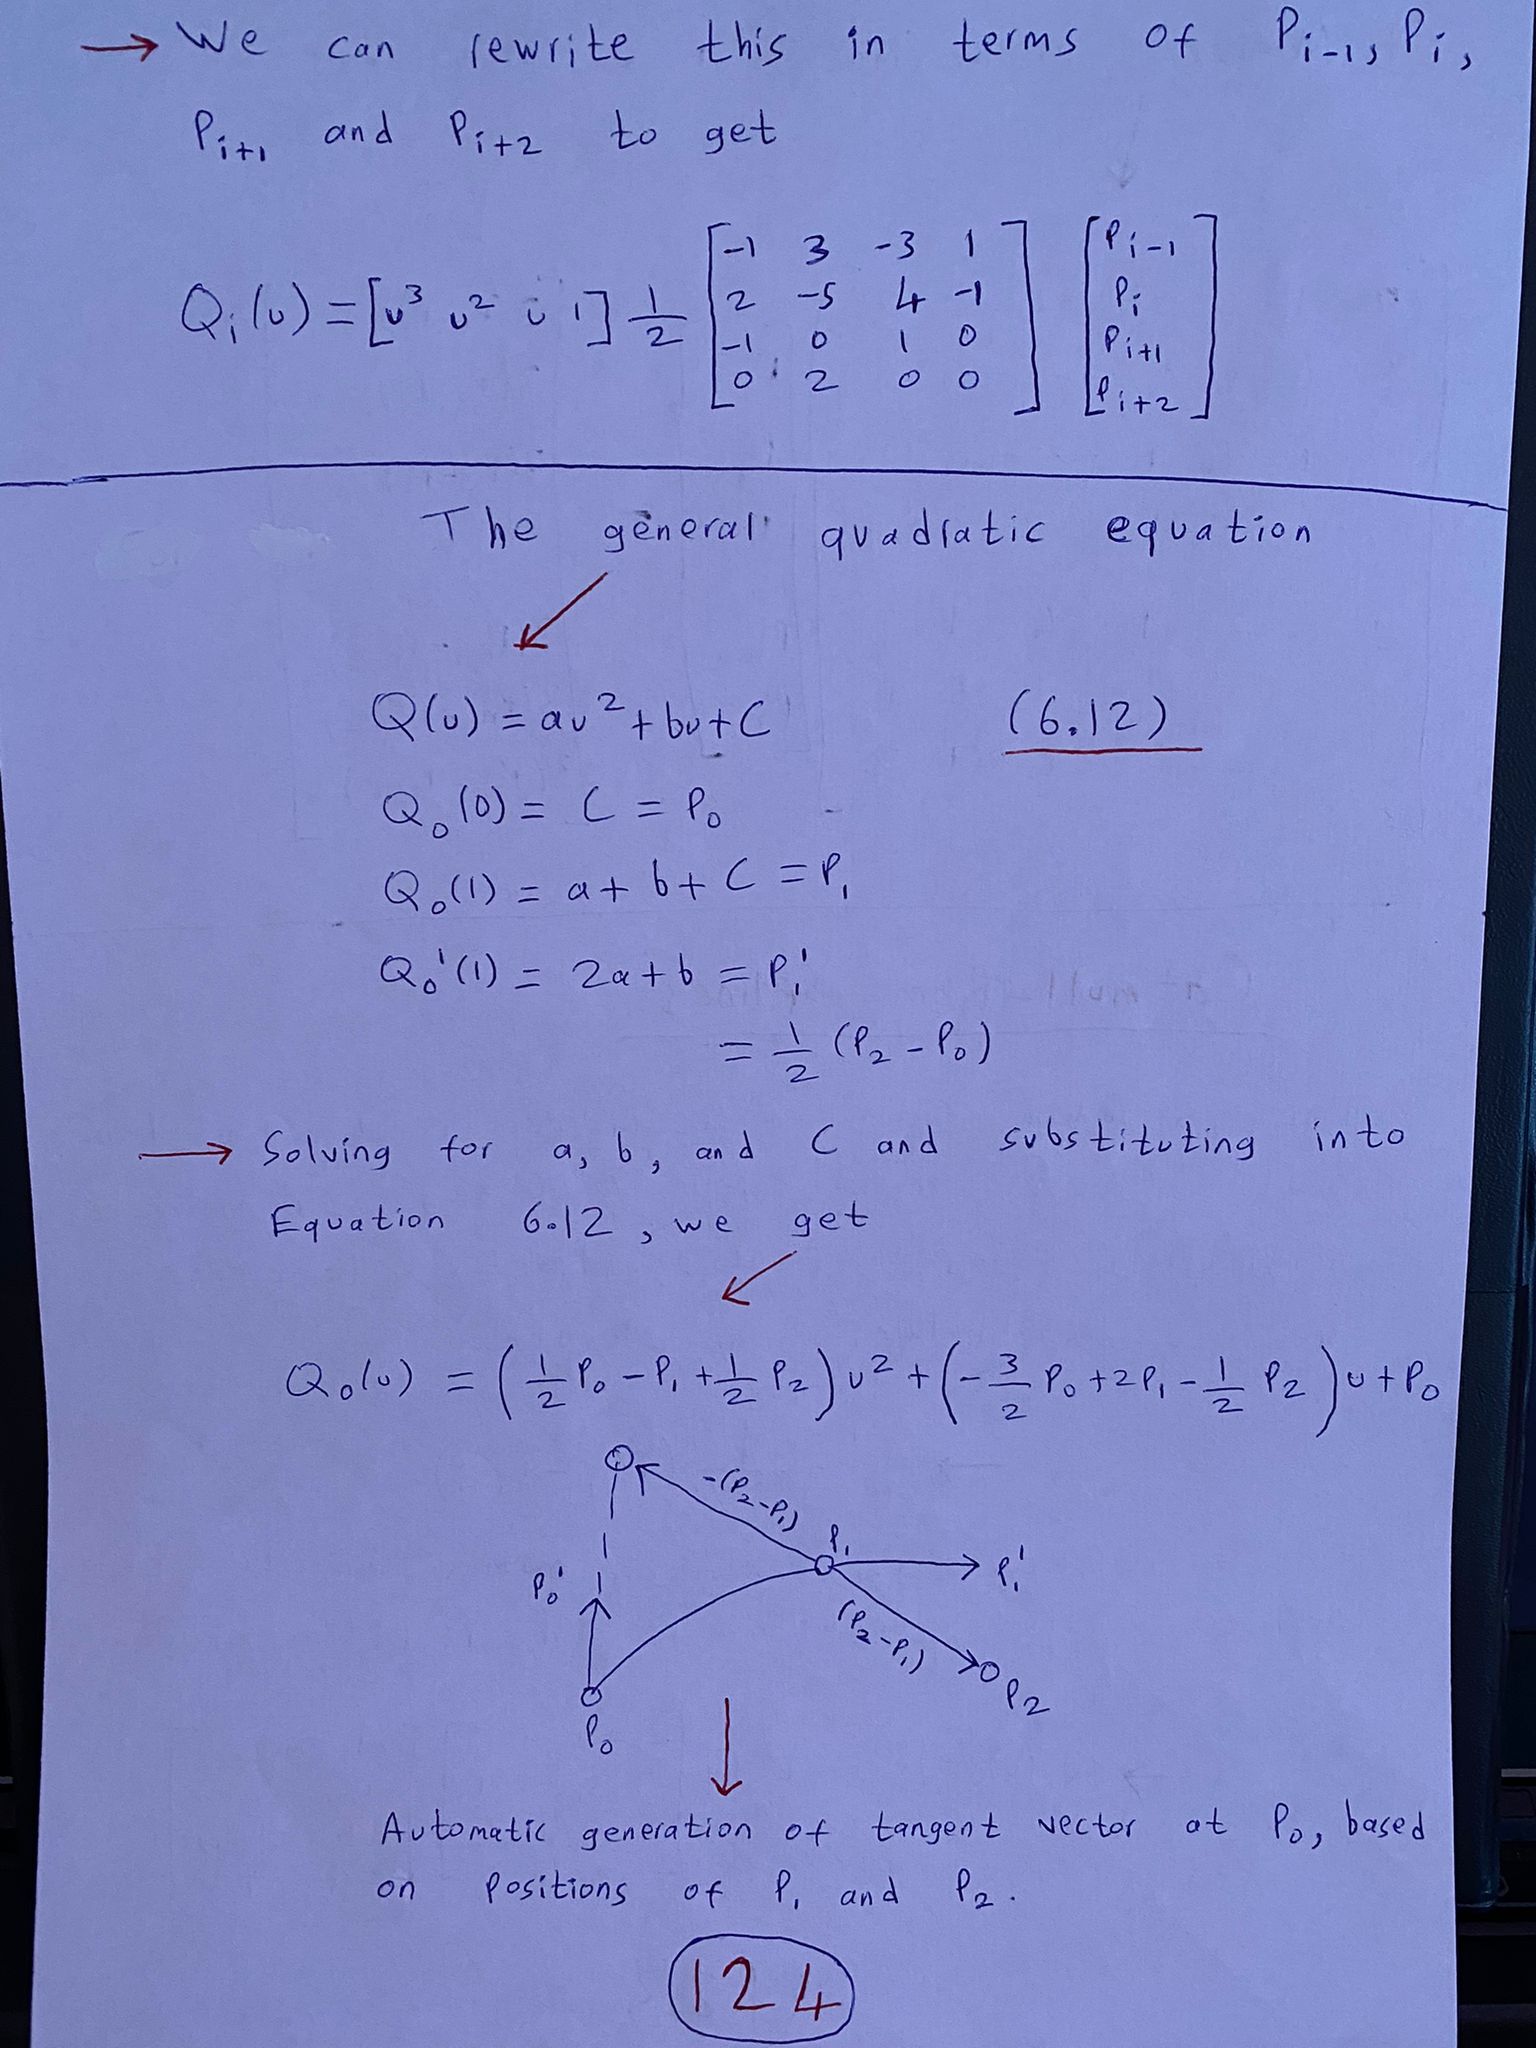 → We can rewrite this in terms of Pi-1, Pi,
Pi+1 and Pi+2 to get
Qi(u) = [u³ u² u 1] 1/2 [-1 3 -3 1; 2 -5 4 -1; -1 0 1 0; 0 2 0 0] [Pi-1; Pi; Pi+1; Pi+2]
The general quadratic equation
Q(u) = au² + bu + C (6.12)
Q₀(0) = C = P₀
Q₀(1) = a + b + C = P₁
Q₀'(1) = 2a + b = P₁'
= 1/2 (P₂ - P₀)
→ Solving for a, b, and C and substituting into
Equation 6.12, we get
Q₀(u) = (1/2 P₀ - P₁ + 1/2 P₂) u² + (-3/2 P₀ + 2P₁ - 1/2 P₂) u + P₀
-(P₂-P₁)
P₁
P₀'
P₁'
(P₂-P₁)
P₂
P₀
Automatic generation of tangent vector at P₀, based
on positions of P₁ and P₂.
124